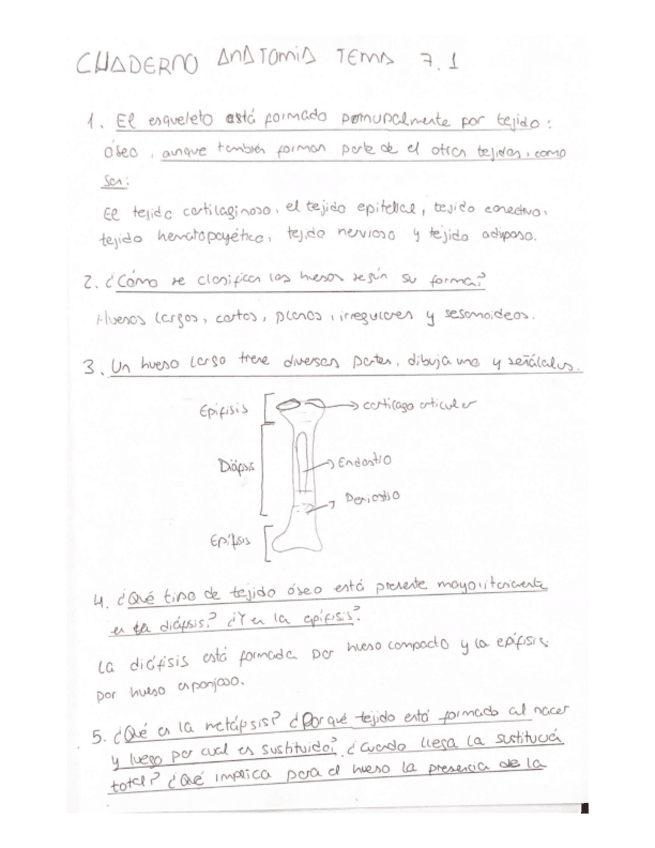 CUADERNO ANATOMIA TEMA 7.1
1. El esqueleto está formado principalmente por tejido:
óseo, aunque también forman parte de el otros tejidos, como
son:
El tejido cartilaginoso, el tejido epitelial, tejido conectivo,
tejido hematopoyético, tejido nervioso y tejido adiposo.
2. ¿Cómo se clasifican los huesos según su forma?
Huesos largos, cortos, planos, irregulares y sesamoideos.
3. Un hueso largo tiene diversas partes, dibuja uno y señálalas.
Epífisis
cartílago articular
Diáfisis
Endostio
Periostio
Epífisis
4. ¿Qué tipo de tejido óseo está presente mayoritariamente
en la diáfisis? ¿Y en la epífisis?
La diáfisis está formada por hueso compacto y la epífisis
por hueso esponjoso.
5. ¿Qué es la metáfisis? ¿Por qué tejido está formado al nacer
y luego por cual es sustituido? ¿Cuando llega la sustitución
total? ¿Qué implica para el hueso la presencia de la